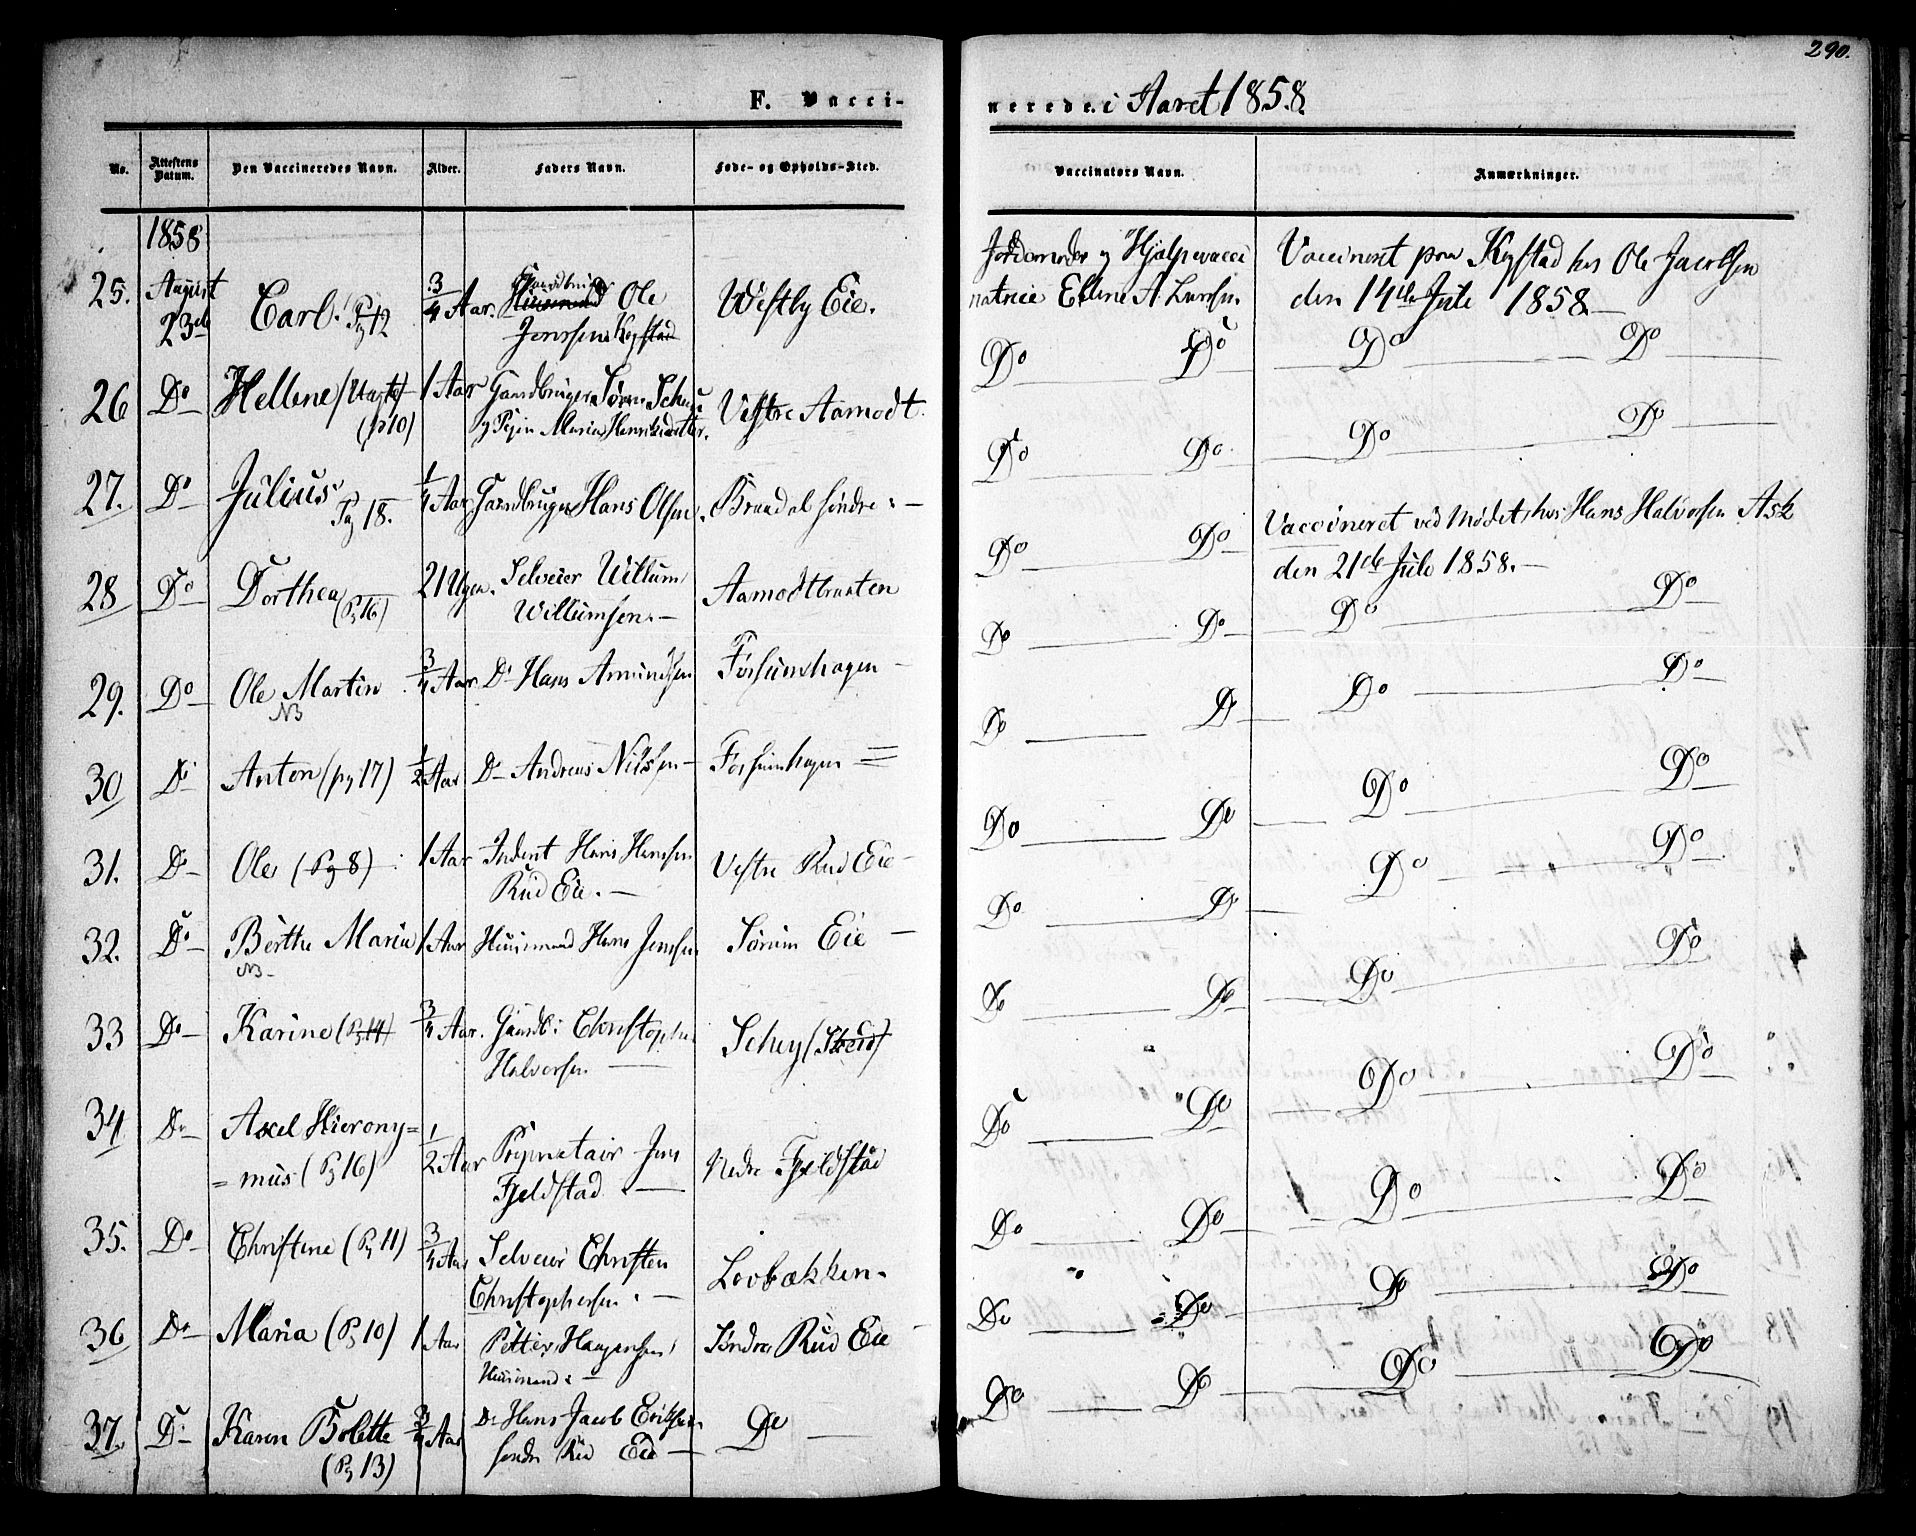 290.
F. Vacci-
nerede. i Aaret 1858.
No.
Attestens Datum.
Den Vaccineredes Navn.
Alder.
Faders Navn.
Føde- og Opholds-Sted.
Vaccinators Navn.
Anmærkninger.
1858
25. August 23de Carl. Pg 12 3/4 Aar. Gaardbruger Ole Jenssen Kogstad Westby Eie.
Jordemoder og Hjælpevacci
natrice Ellene A. Larsen
Vaccineret paa Kogstad hos Ole Jacobsen
den 14de Juli 1858.—
26 Do Hellene (p 10) 1 Aar Gaardbruger Søren
og Pigen Maria Henriksdatter. Vestre Aamodt.
Do Do Do Do
27. Do Julius. Pag 18. 1/4 Aar Gaardbruger Hans Olsen. Braadal søndre
Do Do. Do Do
28 Do Dorthea (Pg 16) 21 Ugen. Selveier Willum
Willumsen.— Aamodtbraaten
Do Do Vaccineret ved Mødet hos Hans Halvorsen Ask
den 21de Juli 1858.—
29. Do Ole Martin 3/4 Aar Do Hans Amundsen Fossumhagen
NB
Do Do Do Do
30 Do Anton (pg 17) 1/2 Aar Do Andreas Nilssen Fossumhagen
Do Do Do Do
31. Do Ole (Pg 8) 1 Aar Inderst Hans Hansen
Rud Eie.— Vestre Rud Eie
Do Do Do Do
32. Do Berthe Maria 1 Aar Huusmand Hans Jenssen Sørum Eie
NB
Do Do Do Do
33 Do Karine (Pg 14) 3/4 Aar. Gaardb: Christopher
Halvorsen Schey
Do Do Do Do
34 Do Axel Hierony=
=mus (Pg 16) 1/2 Aar Proprietair Jens
Fjeldstad Nedre Fjeldstad
Do Do Do Do
35. Do Christine (Pg 11) 3/4 Aar Selveier Christen
Christophersen. Lovbækken.
Do Do Do Do
36 Do Maria (Pg 10) 1 Aar Petter Haagensen
Huusmand Søndre Rud Eie
Do Do Do Do
37. Do Karen Bolette
(Pg 13) 3/4 Aar Do Hans Jacob Eriksen
søndre Rud Eie Do
Do Do Do Do